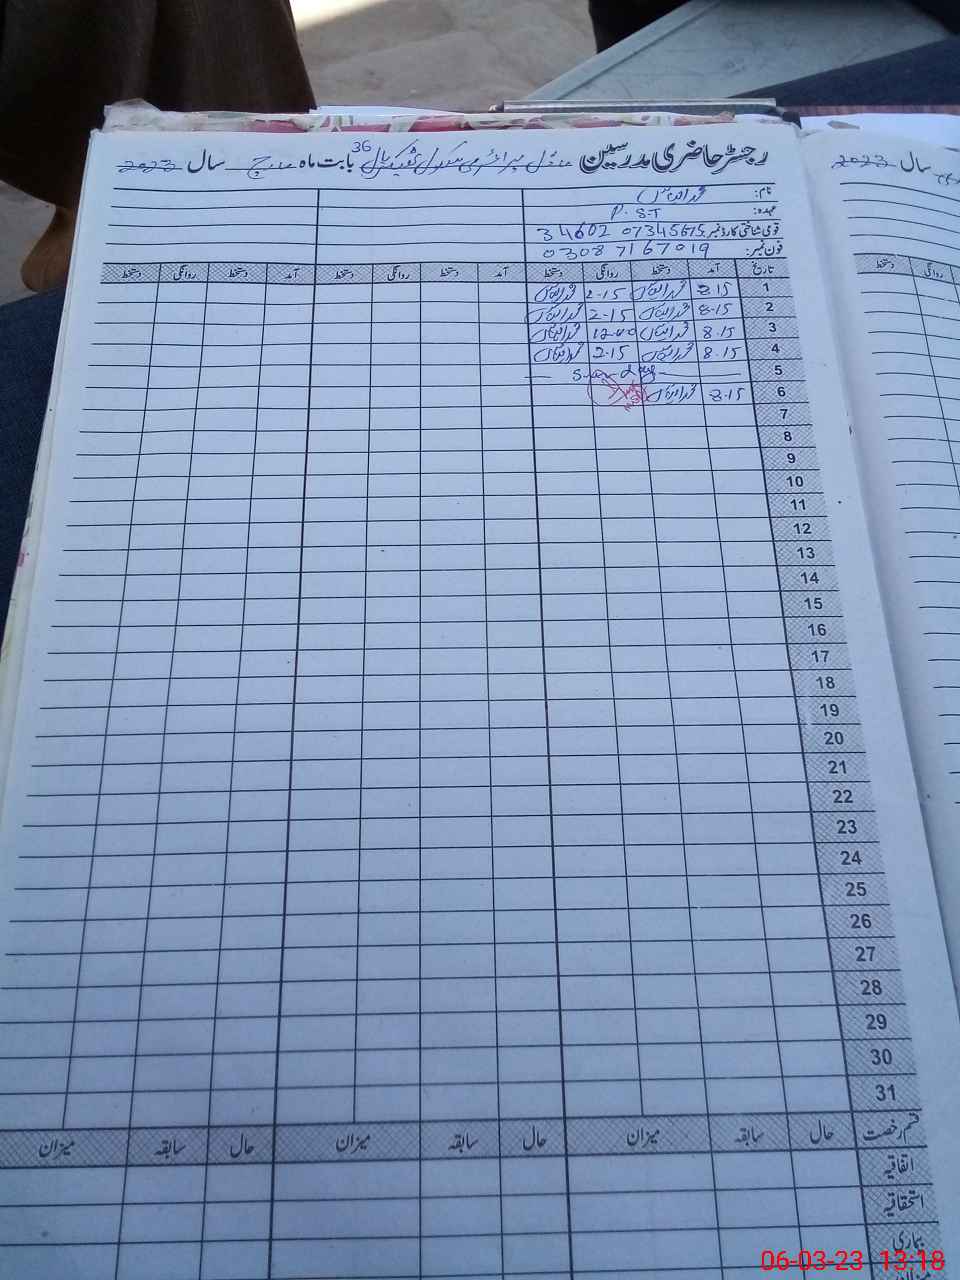 رجسٹر حاضری مدرسین ماڈل پرائمری سکول 36 بابت ماہ مارچ سال 2023
سال 2023
نام:
عہدہ: P.S.T
قومی شناختی کارڈ نمبر: 34602 07345675
فون نمبر: 0308 7167019
تاریخ آمد دستخط روانگی دستخط آمد دستخط روانگی دستخط آمد دستخط روانگی دستخط
روانگی دستخط
1 8.15 2-15
2 8.15 2-15
3 8.15 12-00
4 8.15 2-15
5 Sunday
6 8.15
7
8
9
10
11
12
13
14
15
16
17
18
19
20
21
22
23
24
25
26
27
28
29
30
31
قسم رخصت حال سابقہ میزان حال سابقہ میزان حال سابقہ میزان
اتفاقیہ
استحقاقیہ
بیماری
میزان
06-03-23 13:18